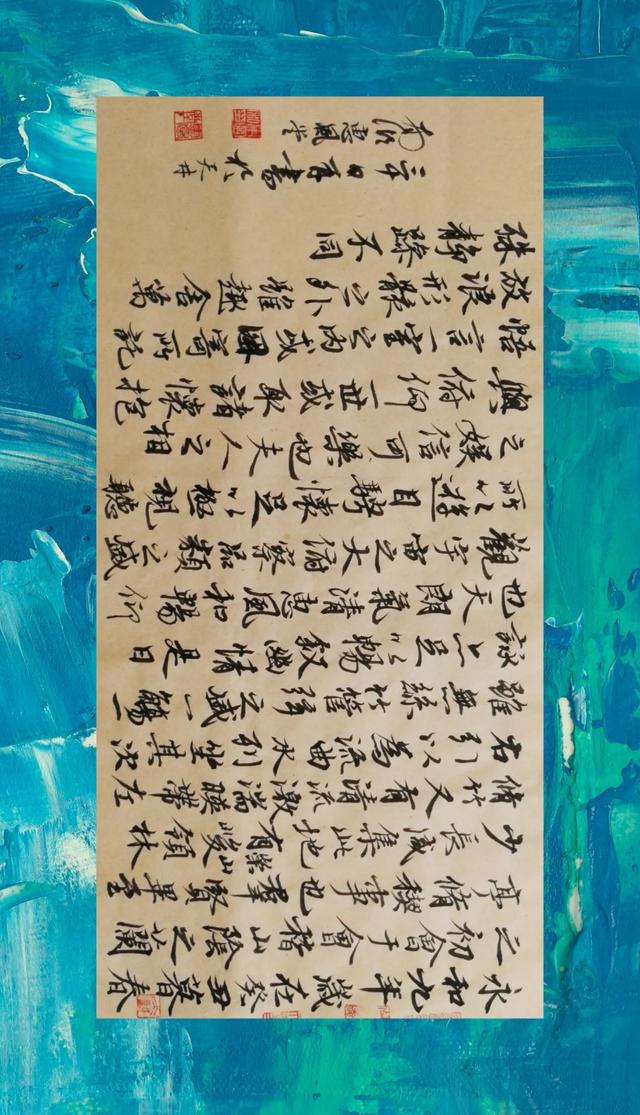 永和九年歲在癸丑暮春
之初會于會稽山陰之蘭
亭脩禊事也羣賢畢至
少長咸集此地有崇山峻領林
脩竹又有清流激湍暎帶左
右引以為流曲水列坐其次
雖無絲竹管弦之盛一觴一
詠亦足以暢敘幽情是日
也天朗氣清惠風和暢仰
觀宇宙之大俯察品類之盛
所以遊目騁懷足以極視聽
之娛信可樂也夫人之相
與俯仰一世或取諸懷抱
悟言一室之內或因寄所託
放浪形骸之外雖趣舍萬
殊靜躁不同
書於天井
惠風堂